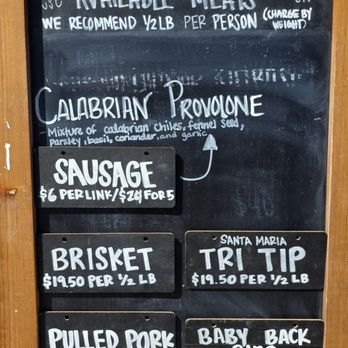 AVAILABLE MEATS
WE RECOMMEND 1/2 LB PER PERSON (CHARGE BY WEIGHT)
CALABRIAN PROVOLONE
Mixture of calabrian chiles, fennel seed,
parsley, basil, coriander, and garlic
SAUSAGE
$6 PER LINK/$24 FOR 5
BRISKET
$19.50 PER 1/2 LB
SANTA MARIA
TRI TIP
$19.50 PER 1/2 LB
PULLED PORK
BABY BACK